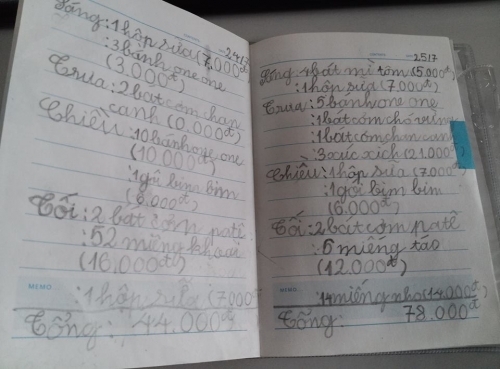 24/7
Sáng: 1 hộp sữa (7.000đ)
: 3 bánh one one
(3.000đ)
Trưa: 2 bát cơm chan
canh (0.000đ)
Chiều: 10 bánh one one
(10.000đ)
: 1 gói bim bim
(6.000đ)
Tối: 2 bát cơm patê
: 52 miếng khoai
(16.000đ)
MEMO
: 1 hộp sữa (7000đ
Tổng: 44.000đ
25/7
Sáng: 4 bát mì tôm (5.000đ)
: 1 hộp sữa (7.000đ)
Trưa: 5 bánh one one
: 1 bát cơm chó vừng
: 1 bát cơm chan canh
: 3 xúc xích (21.000đ)
Chiều: 1 hộp sữa (7.000đ
: 1 gói bim bim
(6.000đ)
Tối: 2 bát cơm patê
: 6 miếng táo
(12.000đ)
MEMO
: 14 miếng nho (14.000đ)
Tổng: 78.000đ